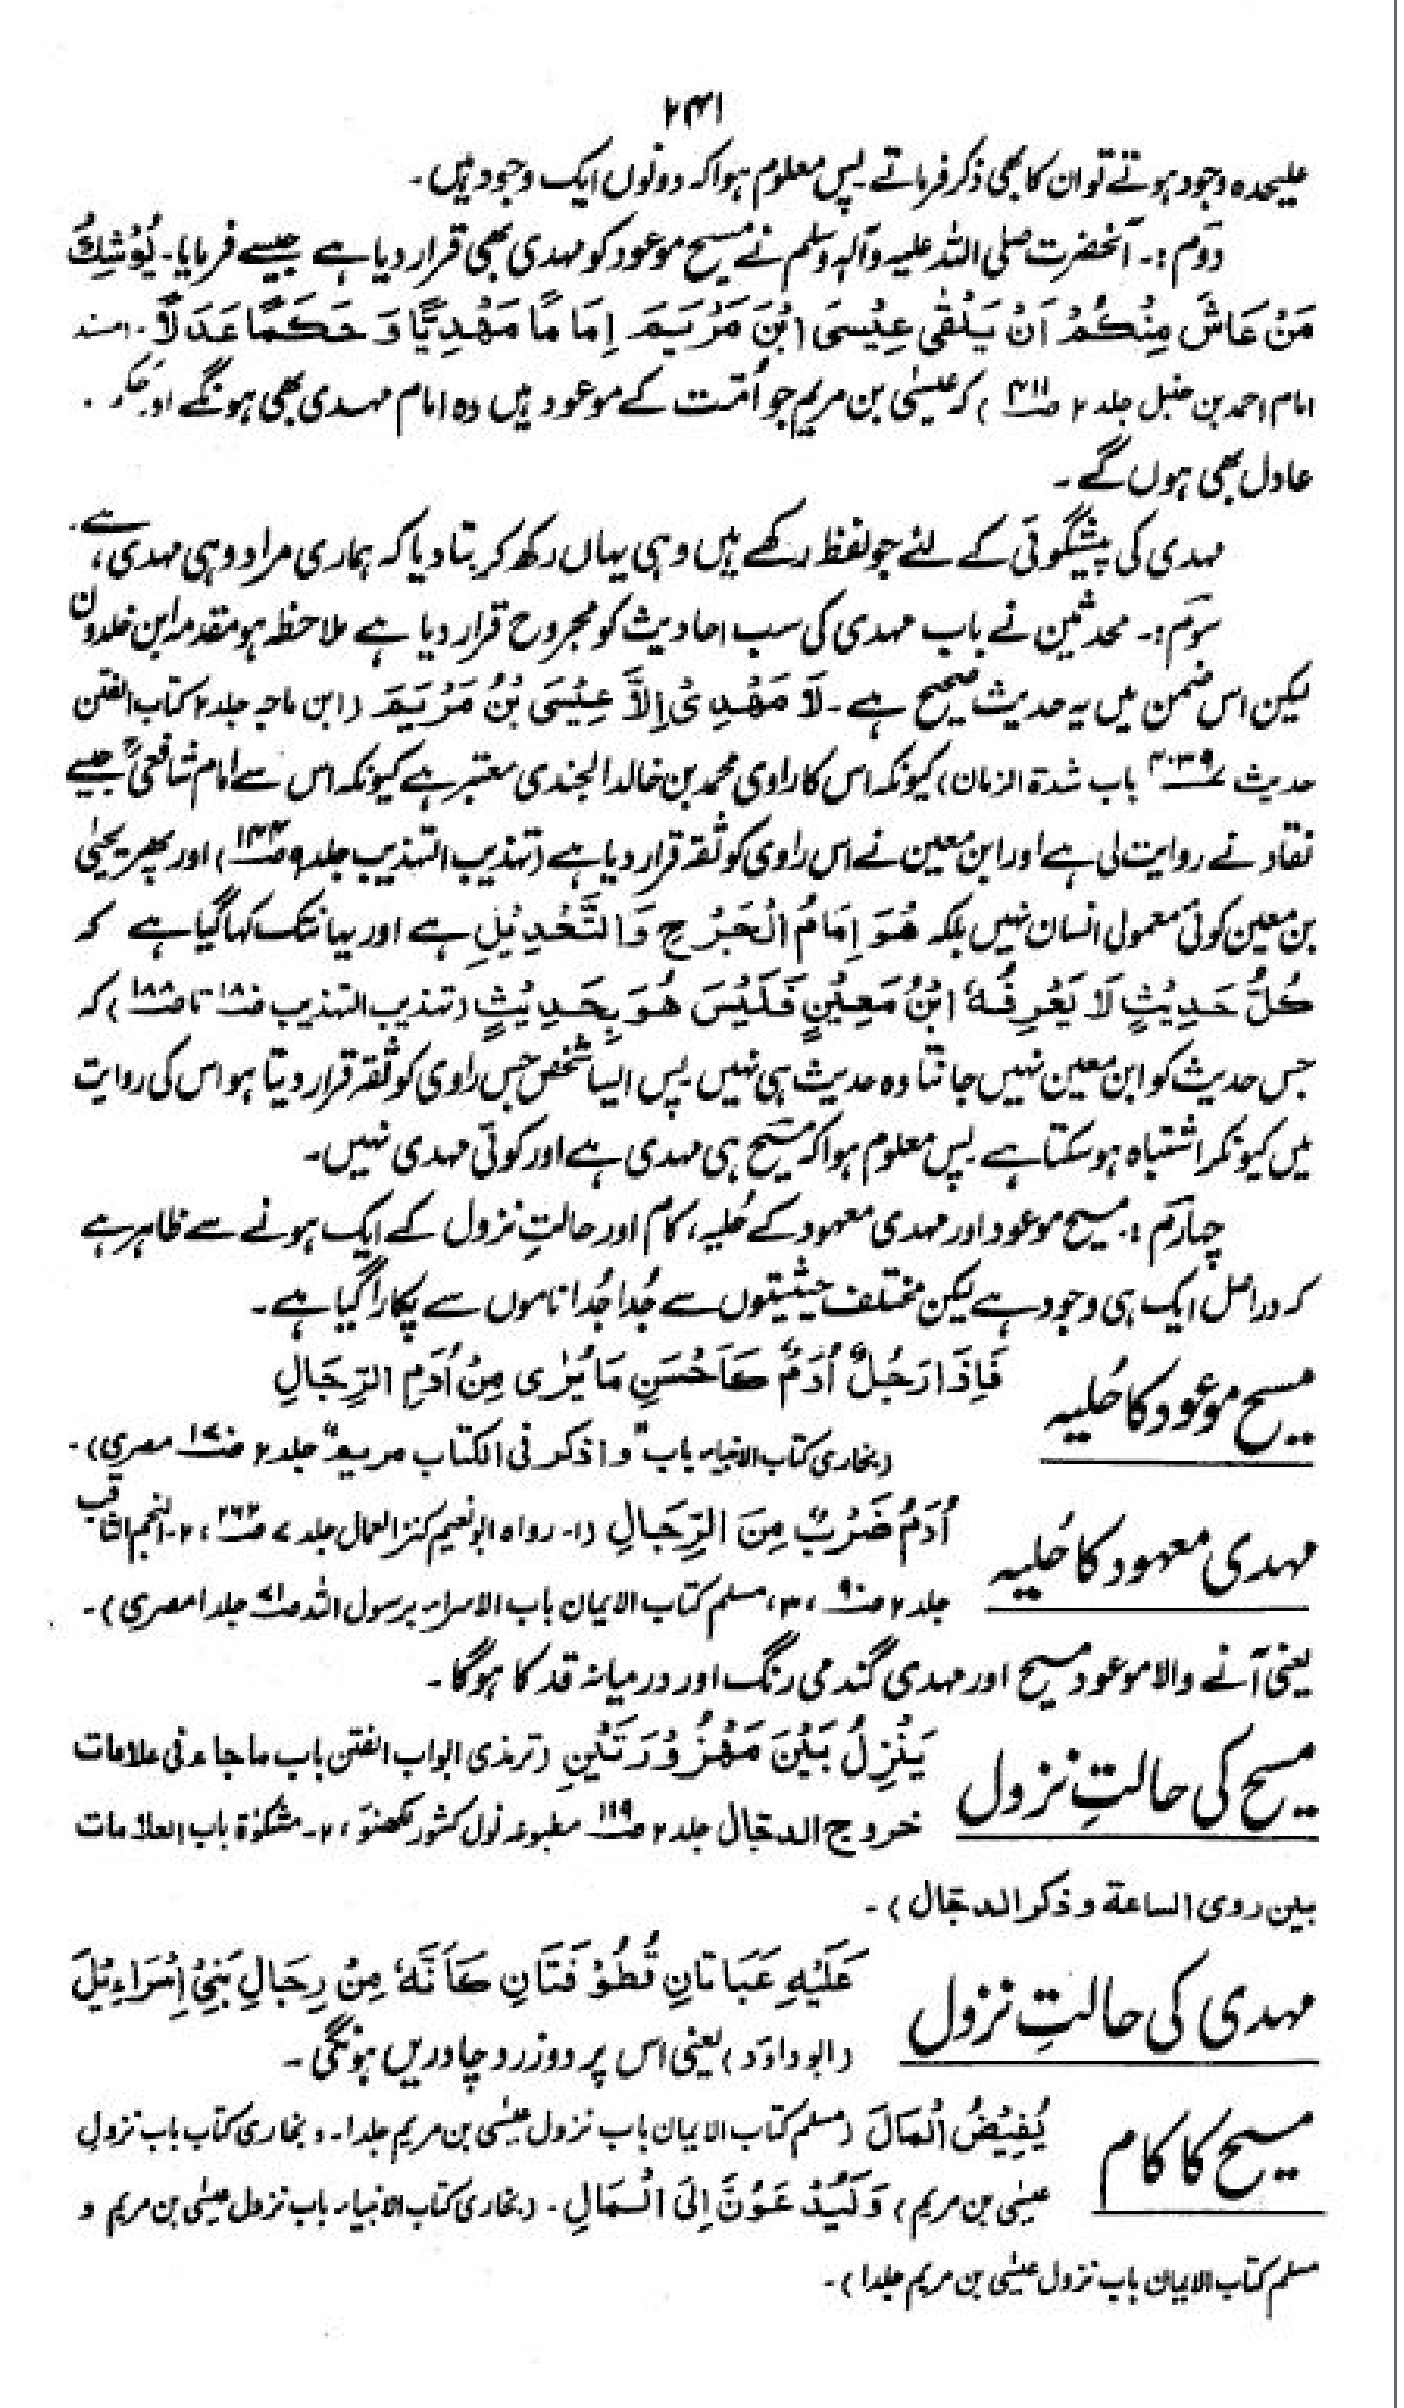 ۲۴۱
علیحدہ وجود ہوتے تو ان کا بھی ذکر فرماتے۔ پس معلوم ہوا کہ دونوں ایک وجود ہیں۔
دوم:۔ آنحضرت صلی اللہ علیہ وآلہ وسلم نے مسیح موعود کو مہدی بھی قرار دیا ہے جیسے فرمایا۔ يُوْشِكُ
مَنْ عَاشَ مِنْكُمْ اَنْ يَلْقٰى عِيْسَى ابْنَ مَرْيَمَ اِمَامًا مَهْدِيًّا وَ حَكَمًا عَدَلًا۔ (مسند
امام احمد بن حنبل جلد ۲ صفحہ ۴۱۱) کہ عیسٰی بن مریم جو اُمّت کے موعود ہیں وہ امام مہدی بھی ہونگے اور حَکَم
عادل بھی ہوں گے۔
مہدی کی پیشگوئی کے لئے جو لفظ رکھے ہیں وہی یہاں رکھ کر بتا دیا کہ ہماری مراد وہی مہدی ہے۔
سوم:۔ محدثین نے باب مہدی کی سب احادیث کو مجروح قرار دیا ہے ملاحظہ ہو مقدمہ ابن خلدون
لیکن اس ضمن میں یہ حدیث صحیح ہے۔ لَا مَهْدِىْ اِلَّا عِيْسَى بْنُ مَرْيَمَ (ابن ماجہ جلد ۲ کتاب الفتن
حدیث ۴۰۳۹ باب شدة الزمان) کیونکہ اس کا راوی محمد بن خالد الجندی معتبر ہے کیونکہ اس سے امام شافعیؒ جیسے
نقاد نے روایت لی ہے اور ابن معین نے اس راوی کو ثقہ قرار دیا ہے (تہذیب التہذیب جلد ۹ صفحہ ۱۴۴) اور پھر یحیٰی
بن معین کوئی معمولی انسان نہیں بلکہ هُوَ اِمَامُ الْجَرْحِ وَالتَّعْدِيْلِ ہے اور یہانتک کہا گیا ہے کہ
كُلُّ حَدِيْثٍ لَا يَعْرِفُهٗ ابْنُ مَعِيْنٍ فَلَيْسَ هُوَ بِحَدِيْثٍ (تہذیب التہذیب صفحہ ۱۸۰ تا صفحہ ۱۸۸) کہ
جس حدیث کو ابن معین نہیں جانتا وہ حدیث ہی نہیں۔ پس ایسا شخص جس راوی کو ثقہ قرار دیتا ہو اس کی روایت
میں کیونکر اشتباہ ہو سکتا ہے۔ پس معلوم ہوا کہ مسیح ہی مہدی ہے اور کوئی مہدی نہیں۔
چہارم:۔ مسیح موعود اور مہدی معہود کے حُلیہ، کام اور حالتِ نزول کے ایک ہونے سے ظاہر ہے
کہ دراصل ایک ہی وجود ہے لیکن مختلف حیثیتوں سے جُدا جُدا ناموں سے پکارا گیا ہے۔
مسیح موعود کا حُلیہ فَاِذَا رَجُلٌ اٰدَمُ كَاَحْسَنِ مَا يُرٰى مِنْ اُدَمِ الرِّجَالِ
(بخاری کتاب الانبیاء باب "واذکر فی الکتاب مریم" جلد ۲ مصری)۔
مہدی معہود کا حُلیہ اٰدَمُ ضَرْبٌ مِنَ الرِّجَالِ (۱۔ رواہ ابو نعیم کنز العمال جلد ۷ صفحہ ۲۶۲، ۲۔ النجم الثاقب
جلد ۲ صفحہ ۹۰، ۳، مسلم کتاب الایمان باب الاسراء برسول اللہ جلد ۱ مصری)۔
یعنی آنے والا موعود مسیح اور مہدی گندمی رنگ اور درمیانہ قد کا ہوگا۔
مسیح کی حالتِ نزول يَنْزِلُ بَيْنَ مَهْزُوْرَتَيْنِ (ترمذی ابواب الفتن باب ما جاء فی علامات
خروج الدجّال جلد ۲ صفحہ ۱۱۹ مطبوعہ نول کشور لکھنؤ، ۲۔ مشکوٰۃ باب العلامات
بین روی الساعة و ذکر الدجّال)۔
مہدی کی حالتِ نزول عَلَيْهِ عَبَاتَانِ قُطُوْفَتَانِ كَاَنَّهٗ مِنْ رِجَالِ بَنِىْ اِسْرَاءِيْلَ
(ابوداؤد) یعنی اس پر دو زرد چادریں ہونگی۔
مسیح کا کام يُفِيْضُ الْمَالَ (مسلم کتاب الایمان باب نزول عیسٰی بن مریم جلد ۱۔ و بخاری کتاب باب نزول
عیسٰی بن مریم) وَلَيُدْعَوُنَّ اِلَى الْمَالِ۔ (بخاری کتاب الانبیاء باب نزول عیسٰی بن مریم و
مسلم کتاب الایمان باب نزول عیسٰی بن مریم جلد ۱)۔